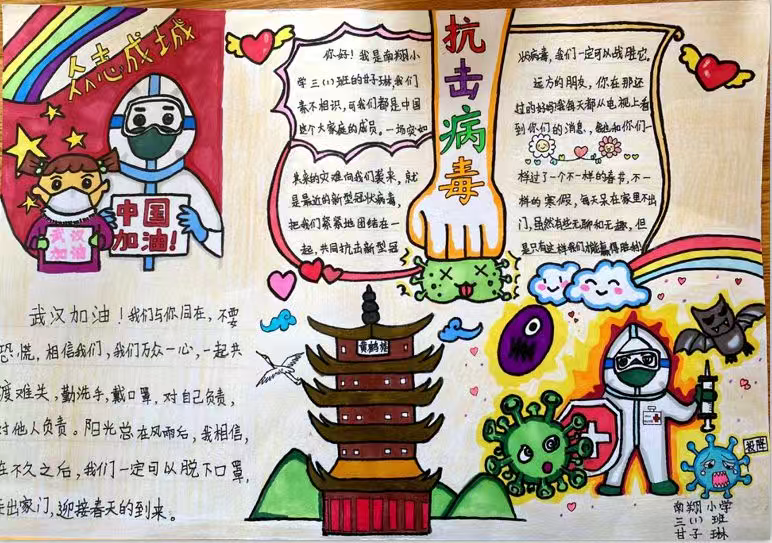 众志成城
中国
加油!
武汉
加油
抗击病毒
你好!我是南翔小
学三(1)班的甘子琳,我们
素不相识,可我们都是中国
这个大家庭的成员,一场突如
其来的灾难向我们袭来,就
是最近的新型冠状病毒,
把我们紧紧地团结在一
起,共同抗击新型冠
状病毒,我们一定可以战胜它。
远方的朋友,你在那还
过的好吗?我每天都从电视上看
到你们的消息,我也和你们一
样过了一个不一样的春节,不一
样的寒假,每天呆在家里不出
门,虽然有些无聊和无趣,但
是只有这样我们才能赢得胜利
武汉加油!我们与你同在,不要
恐慌,相信我们,我们万众一心,一起共
渡难关,勤洗手,戴口罩,对自己负责,
对他人负责。阳光总在风雨后,我相信,
在不久之后,我们一定可以脱下口罩,
走出家门,迎接春天的到来。
黄鹤楼
投降
南翔小学
三(1)班
甘子琳